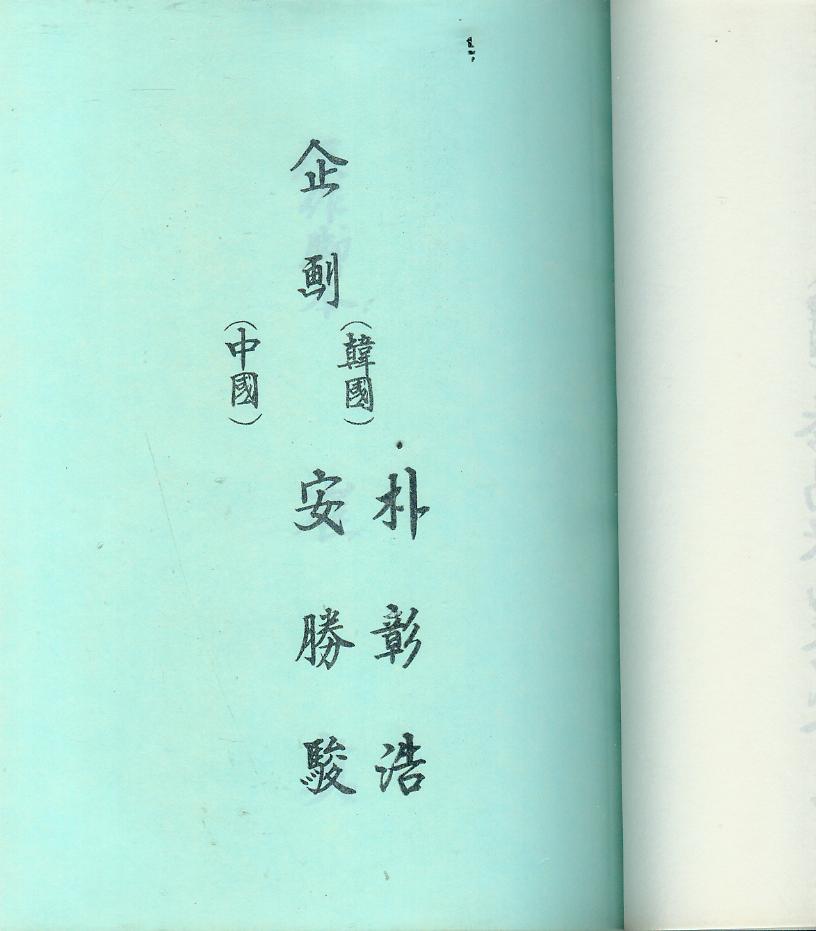 企劃
(韓國) 朴彰浩
(中國) 安勝駿